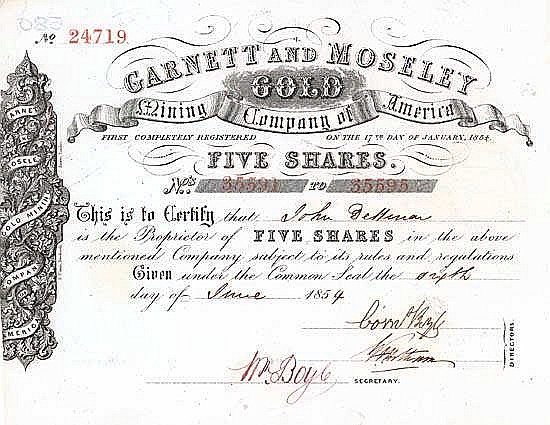 No 24719
GARNETT AND MOSELEY
GOLD
Mining Company of America
FIRST COMPLETELY REGISTERED ON THE 17TH DAY OF JANUARY, 1854.
FIVE SHARES.
Nos. 35591 TO 35595
This is to Certify that John
is the Proprietor of FIVE SHARES in the above
mentioned Company subject to its rules and regulations
Given under the Common Seal the sixth
day of June 1854
DIRECTORS.
Boyle
SECRETARY.
GARNETT
MOSELEY
GOLD MINING
COMPANY
AMERICA